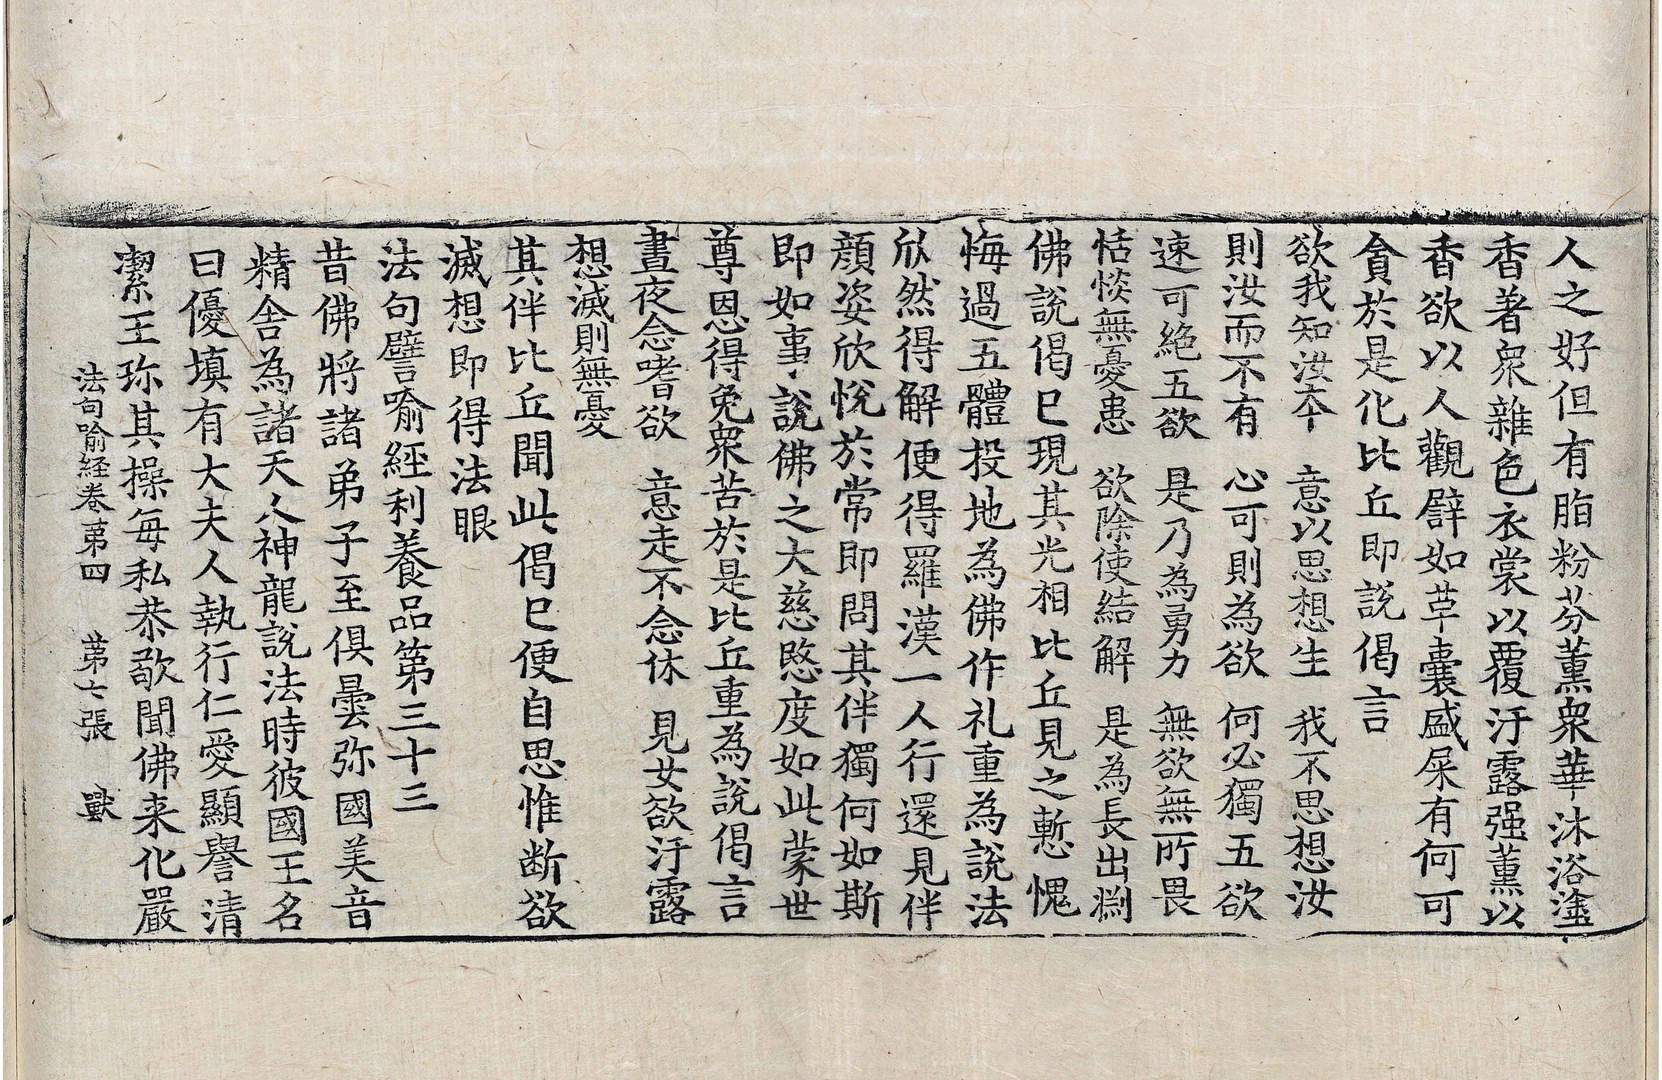 人之好但有脂粉芬薰衆華沐浴塗
香著衆雜色衣裳以覆汙露强薰以
香欲以人觀辟如草囊盛屎有何可
貪於是化比丘即說偈言
欲我知汝本　意以思想生　我不思想汝
則汝而不有　心可則為欲　何必獨五欲
速可絶五欲　是乃為勇力　無欲無所畏
恬惔無憂患　欲除使結解　是為長出淵
佛說偈已現其光相比丘見之慙愧
悔過五體投地為佛作礼重為說法
欣然得解便得羅漢一人行還見伴
顔姿欣悅於常即問其伴獨何如斯
即如事說佛之大慈愍度如此蒙世
尊恩得免衆苦於是比丘重為說偈言
晝夜念嗜欲　意走不念休　見女欲汙露
想滅則無憂
其伴比丘聞此偈已便自思惟断欲
滅想即得法眼
法句譬喻經利養品第三十三
昔佛將諸弟子至俱曇弥國美音
精舍為諸天人神龍說法時彼國王名
曰優填有大夫人執行仁愛顯譽清
潔王珎其操每私恭敬聞佛来化嚴
法句喻經卷第四　第七張